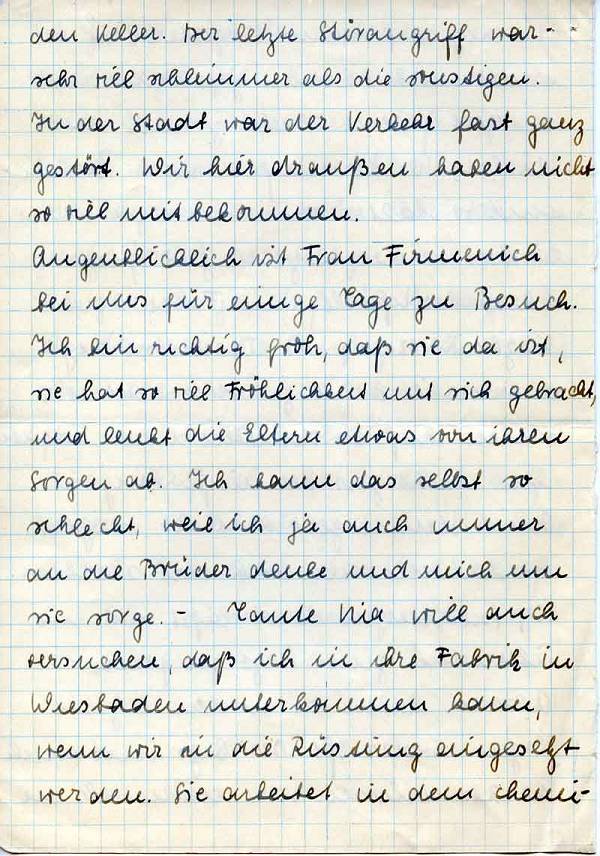 den Keller. Der letzte Störangriff war
sehr viel schlimmer als die sonstigen.
In der Stadt war der Verkehr fast ganz
gestört. Wir hier draußen haben nicht
so viel mitbekommen.
Augenblicklich ist Frau Firmenich
bei uns für einige Tage zu Besuch.
Ich bin richtig froh, daß sie da ist,
sie hat so viel Fröhlichkeit mit sich gebracht,
und lenkt die Eltern etwas von ihren
Sorgen ab. Ich kann das selbst so
schlecht, weil ich ja auch immer
an die Brüder denke und mich um
sie sorge. - Tante Mia will auch
versuchen, daß ich in ihre Fabrik in
Wiesbaden unterkommen kann,
wenn wir in die Rüstung eingesetzt
werden. Sie arbeitet in dem chemi-